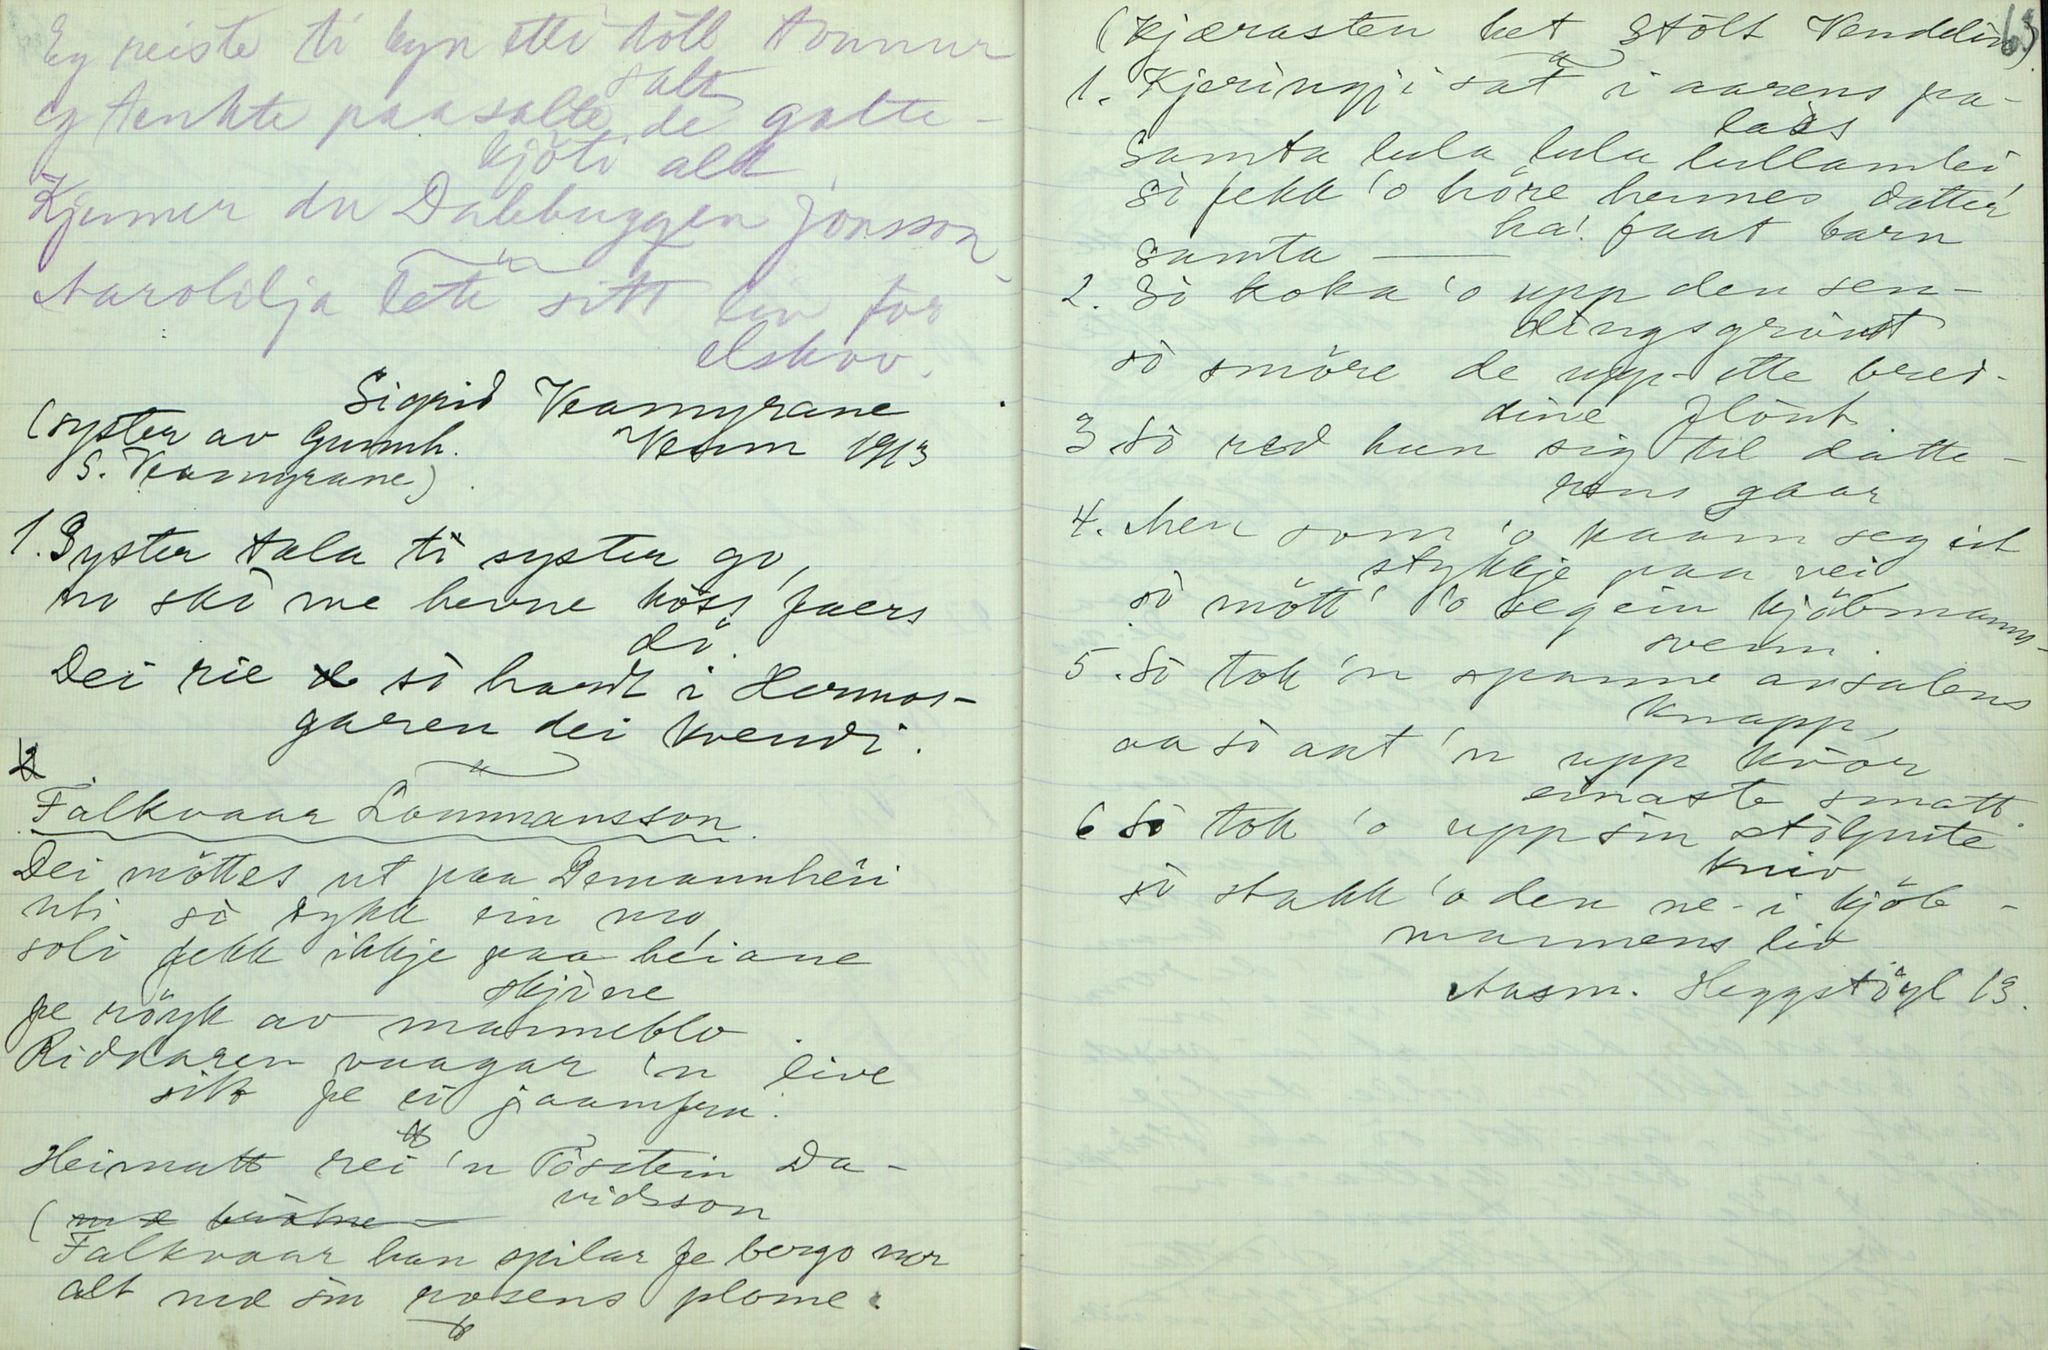 Eg reiste ti byn etti tōll tonnur
salt
eg tenkte paa salte de galte-
kjöti alt
Kjenner du Dalebuggen Jonsson
Aarolilja lete sitt liv for
elskov.
Sigrid Veamyrane
(syster av Gunnh. Veum 1913
S. Veamyrane)
1. Syster tala ti syster go,
no sko me hevne köss faers
dö.
Dei rie so hardt i Hermos-
garen dei kvendi.
Falkvaar Lommansson
Dei möttes ut paa Demannheii
uti so tykk ein mo,
soli fekk ikkje paa heiane
skjine
fe röyk av manneblo.
Riddaren vaagar 'n live
sitt fe ei jaamfru.
Heimatt rei 'n Tōstein Da-
vidsson
(
Falkvaar han spilar fe bergo nor
alt med sin rosens plome.
63
(Kjærasten het Stölt Vendelin)
1. Kjeringji sat i aarens pa-
lass
Samta lula lula lullamlei,
So fekk 'o höre hennes datter
ha! faat barn
Samta —
2. So koka 'o upp den sen-
dingsgrönt
so smöre de upp ette bred-
dine flönt.
3 So red hun sig til datte-
rens gaar
4. Men som 'o kaam seg eit
stykkje paa vei
so mött' 'o seg ein kjöbmanns-
svenn.
5. So tok 'n spanne av salens
knapp,
aa so aat 'n upp kvōr
einaste smatt.
6 So tok 'o upp sin stölpute
kniv
so stakk 'o den ne i kjöb-
mannens liv
Aasm. Heggstöyl 13.